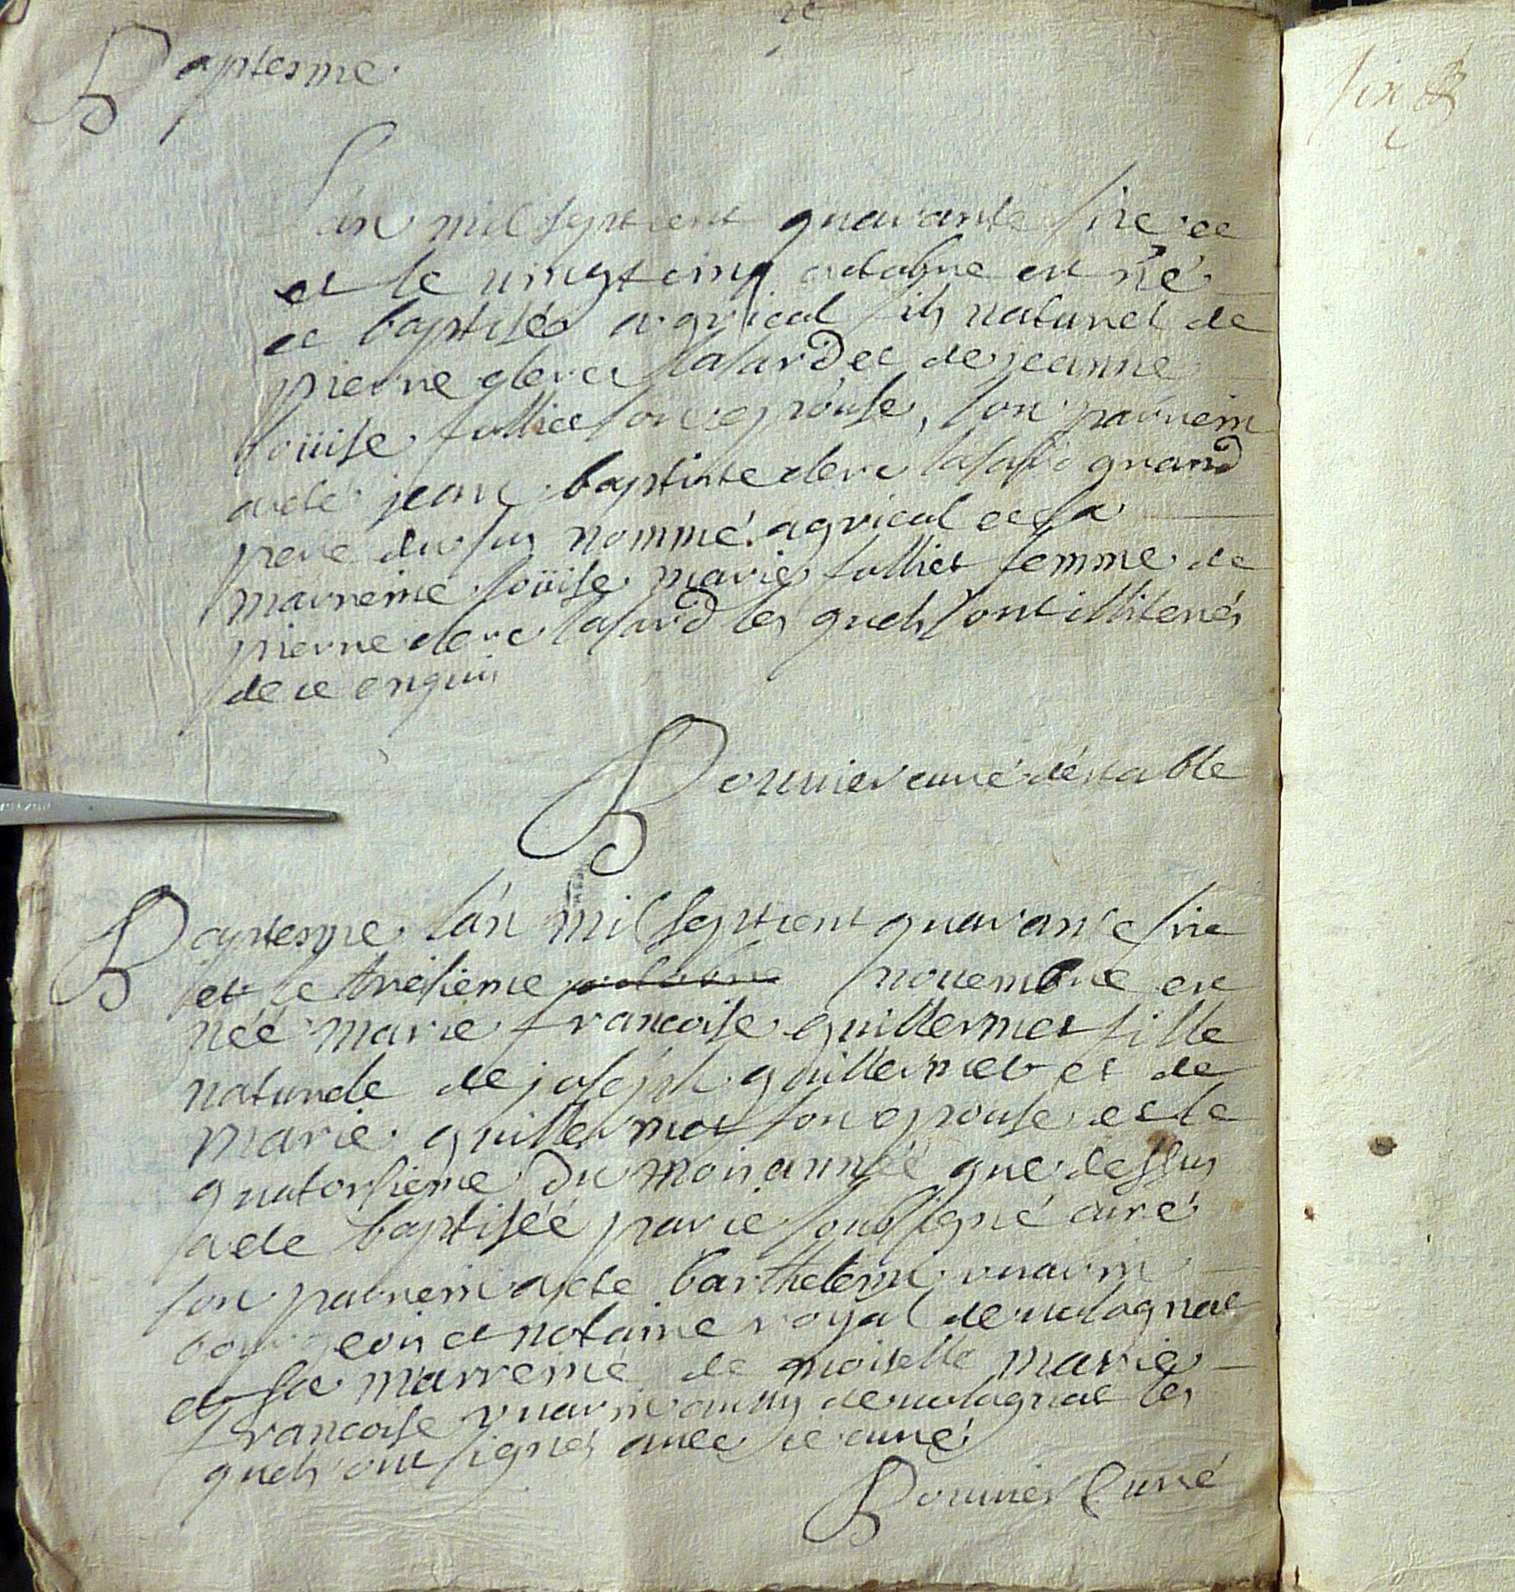 Baptesme
L'an mil sept cent quarante sixe ee
et le vingtcinq octobre est né
ee baptisée agrical fils naturel de
pierre clerc lasard et de jeanne
loüise folliet son epouse, son parrein
a ete jean baptiste clerc lasard grand
pere du sus nommé agrical et sa
marreine loüise marie folliet femme de
pierre clerc lasard les quels sont illiterés
de ce enquis
Bouvier curé
Baptesme l'an mil sept cent quarante sixe
et le tresieme octobre novembre est
néé marie francoise guillermet fille
naturele de joseph guillermet et de
marie guillermet son epouse et le
quatorsieme du mois année que dessus
a ete baptiséé par ie soubsigné curé
son parrein a ete barthelemi vuarin
bourgeois et notaire royal de
et sa marreine demoiselle marie
francoise vuarin aussy de les
quels ont signes avec ie curé
Bouvier Curé